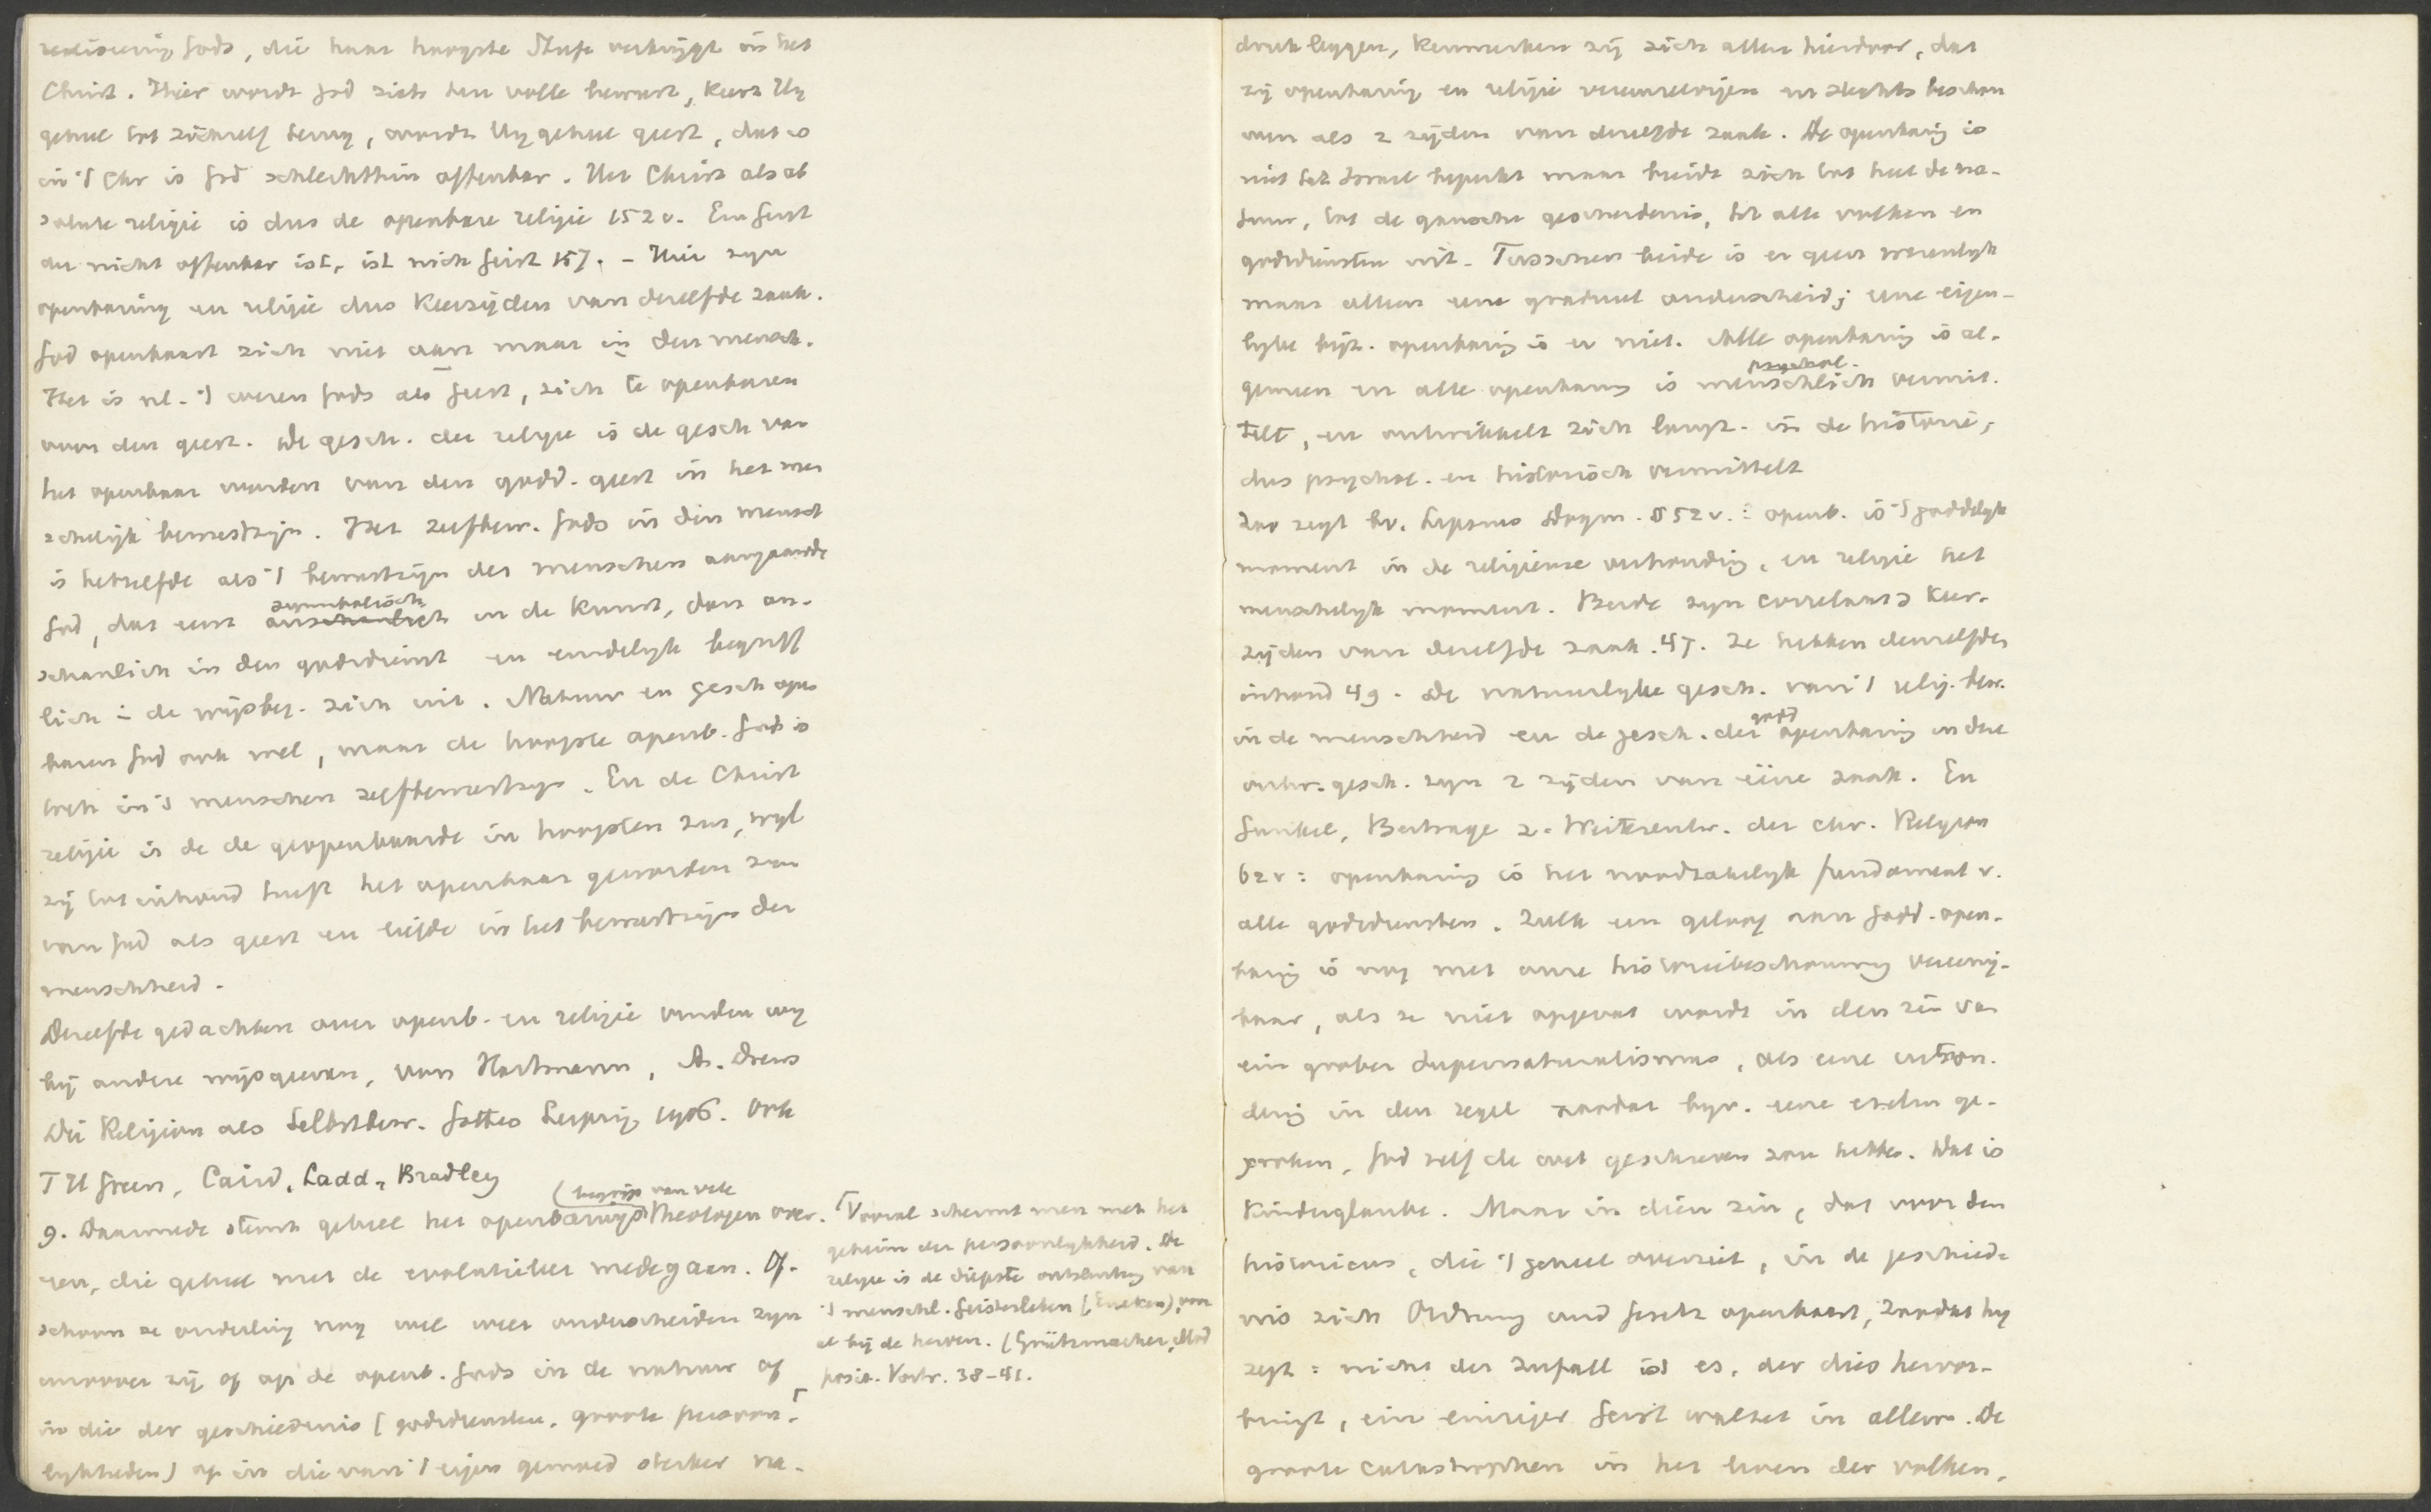 realiseering Gods, die haar hoogste Stufe verkrijgt in het
Christ. Hier wordt God zich ten volle bewust, keert Hy
geheel tot zichzelf terug, wordt Hy geheel geest, dat is
in 't Chr is God schlechthin offenbar. Het Christ als ab
solute religie is dus de openbare religie 152 v. Ein Geist
der nicht offenbar ist, ist nicht Geist 157. - Hier zyn
openbaring en religie dus keerzijden van dezelfde zaak.
God openbaart zich niet aan maar in den mensch.
Het is nl. 't wezen Gods als Geest, zich te openbaren
voor den geest. De gesch. der religie is de gesch van
het openbaar worden van den godd. geest in het men
schelijk bewustzijn. Het zelfbew. Gods in den mensch
is hetzelfde als 't bewustzijn des menschen aangaande
God, dat eerst symbolisch in de kunst, dan an-
schaulich in den godsdienst en eindelyk begriff
lich in de wijsbeg. zich uit. Natuur en gesch open
baren God ook wel, maar de hoogste openb. Gods is
toch in 's menschen zelfbewustzijn. En de Christ
religie is de de geopenbaarde in hoogsten zin, wyl
zij tot inhoud heeft het openbaar geworden zijn
van God als geest en liefde in het bewustzijn der
menschheid.
Dezelfde gedachten over openb. en religie vinden wy
bij andere wijsgeeren, von Hartmann, A. Drews
Die Religion als Selbstbew. Gottes Leipzig 1906. Ook
T H Green, Caird, Ladd, Bradley
(begrip van vele
9. Daarmede stemt geheel het openbarings Theologen over-
een, die geheel met de evolutieleer medegaan. Of-
schoon ze onderling nog wel weer onderscheiden zyn
naarmate zij of op de openb. Gods in de natuur of
in die der geschiedenis (godsdiensten, groote persoon-
lykheden) of in die van 't eigen gemoed sterker na-
Vooral schermt men met het
geheim der persoonlykheid. De
religie is de diepste ontsluiting van
't menschl. Geistesleben (Eucken), vooral
bij de heroen. (Grützmacher, Mod
posit. Vortr. 38-41.
druk leggen, kenmerken zij zich allen hierdoor, dat
zij openbaring en religie vereenzelvigen en slechts beschou
wen als 2 zijden van dezelfde zaak. De openbaring is
niet tot Israel beperkt maar breidt zich tot heel de na-
tuur, tot de gansche geschiedenis, tot alle volken en
godsdiensten uit. Tusschen beide is er geen wezenlyk
maar alleen een gradueel onderscheid; eene eigen-
lyke bijz. openbaring is er niet. Alle openbaring is al-
gemeen en alle openbaring is psychol. menschlich vermit-
telt, en ontwikkelt zich langz. in de historie,
dus psychol. en historisch vermittelt
Zoo zegt bv. Lipsius Dogm. § 52 v.: openb. is 't goddelyk
moment in de religieuze verhouding, en religie het
menschelyk moment. Beide zyn correlaat, keer-
zijden van dezelfde zaak. 47. Ze hebben denzelfden
inhoud 49. De natuurlyke gesch. van 't relig. bew.
in de menschheid en de gesch. der godd openbaring in deze
ontw. gesch. zyn 2 zijden van eene zaak. En
Gunkel, Beitrage z. Weiterentw. der chr. Religion
62 v: openbaring is het noodzakelyk fundament v.
alle godsdiensten. Zulk een geloof aan Godd. open-
baring is nog met onze historiebeschouwing vereenig-
baar, als ze niet opgevat wordt in den zin van
ein grober Supernaturalismus, als eene uitzon-
dering in den regel zoodat byv. eene ezelin ge-
sproken, God zelf de wet geschreven zou hebben. Dat is
Kinderglaube. Maar in dien zin, dat voor den
historicus, die 't geheel overziet, in de geschiede
nis zich Ordnung und Gesetz openbaart, zoodat hy
zegt: nicht der Zufall ist es, der dies hervor-
bringt, ein einziger Geist waltet in allem. De
groote catastrophen in het leven der volken,